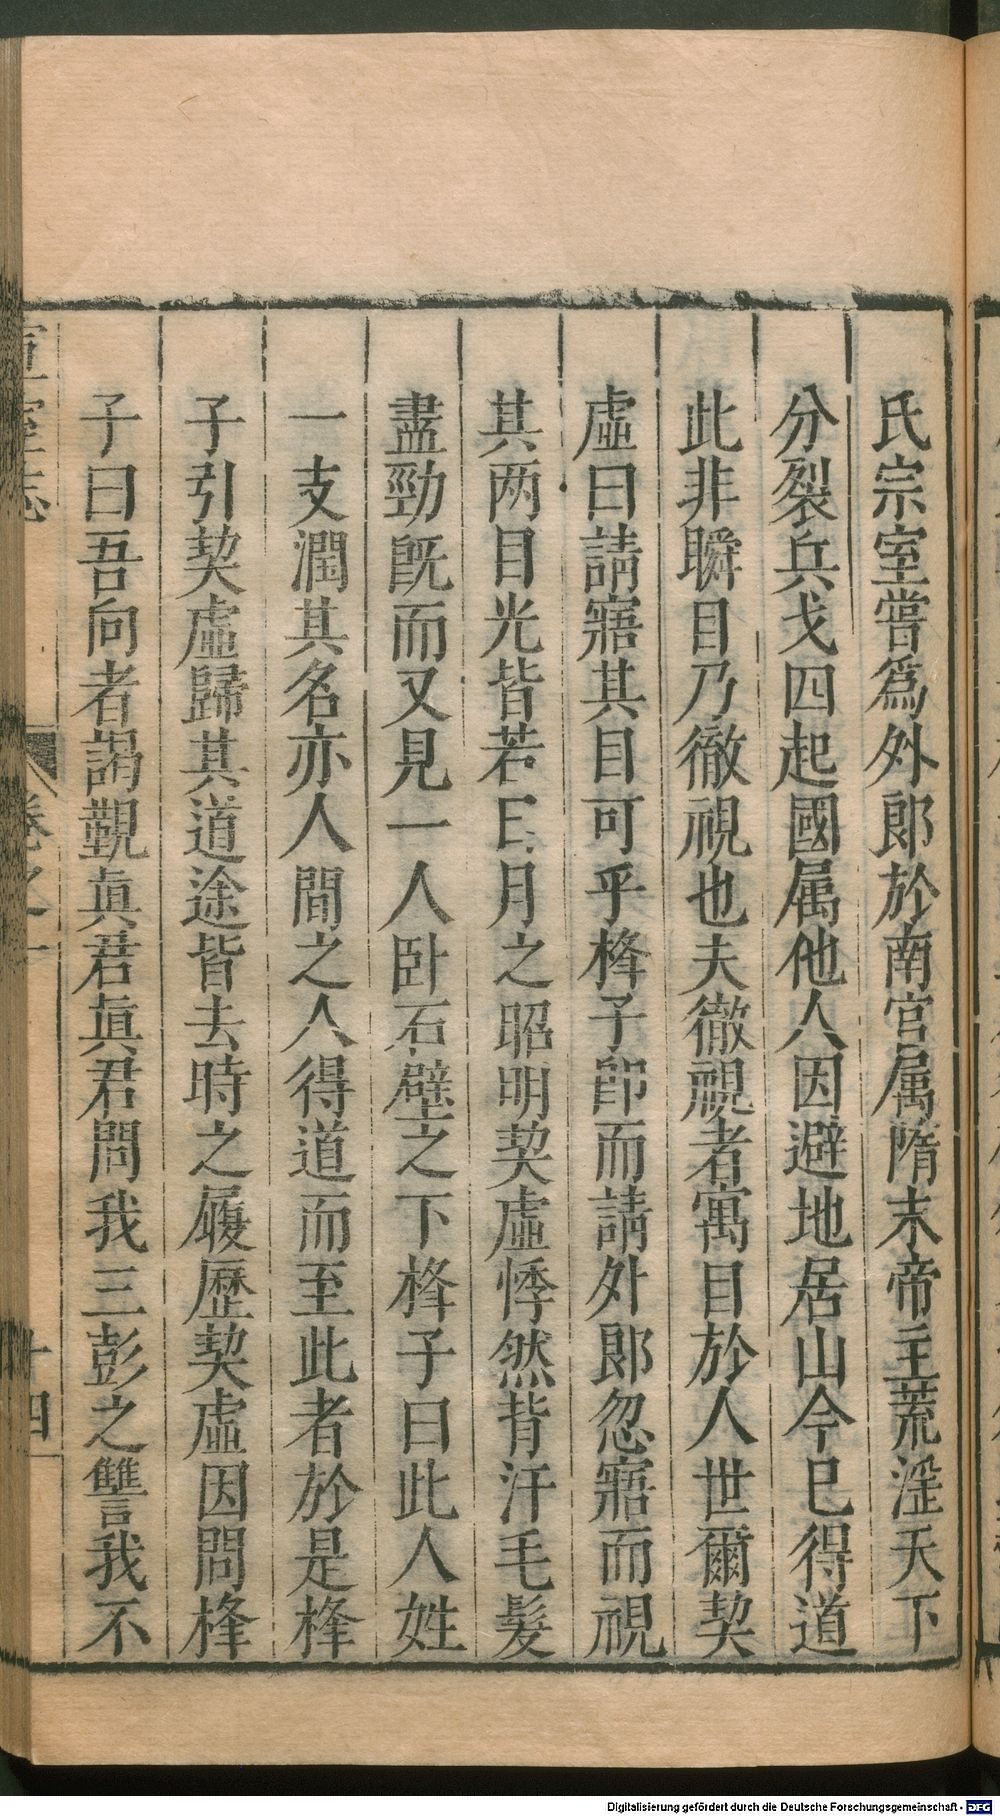 氏宗室嘗爲外郎於南宮属隋末帝主荒淫天下
分裂兵戈四起國属他人因避地居山今已得道
此非瞬目乃徹視也夫徹視者寓目於人世爾契
虛曰請寤其目可乎㭫子卽而請外郎忽寤而視
其两目光皆若日月之昭明契虛悸然背汗毛髮
盡勁旣而又見一人卧石壁之下㭫子曰此人姓
一支潤其名亦人間之人得道而至此者於是㭫
子引契虛歸其道途皆去時之履歷契虛因問㭫
子曰吾向者謁覲眞君眞君問我三彭之讐我不
宣室志
卷之一
十四
Digitalisierung gefördert durch die Deutsche Forschungsgemeinschaft - DFG